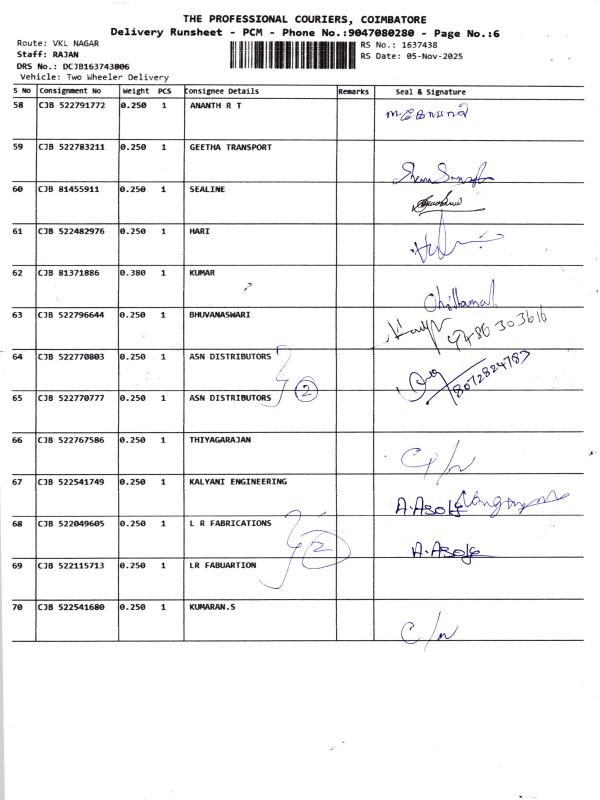 THE PROFESSIONAL COURIERS, COIMBATORE
Delivery Runsheet - PCM - Phone No.:9047080280 - Page No.:6
Route: VKL NAGAR
RS No.: 1637438
Staff: RAJAN
RS Date: 05-Nov-2025
DRS No.: DCJB163743806
Vehicle: Two Wheeler Delivery
S No Consignment No Weight PCS Consignee Details Remarks Seal & Signature
58 CJB 522791772 0.250 1 ANANTH R T
59 CJB 522783211 0.250 1 GEETHA TRANSPORT
60 CJB 81455911 0.250 1 SEALINE
61 CJB 522482976 0.250 1 HARI
62 CJB 81371886 0.380 1 KUMAR
63 CJB 522796644 0.250 1 BHUVANASWARI 9486303616
64 CJB 522770803 0.250 1 ASN DISTRIBUTORS
8072824783
2
65 CJB 522770777 0.250 1 ASN DISTRIBUTORS
66 CJB 522767586 0.250 1 THIYAGARAJAN
67 CJB 522541749 0.250 1 KALYANI ENGINEERING
A.Asok
68 CJB 522049605 0.250 1 L R FABRICATIONS
2
A.Asok
69 CJB 522115713 0.250 1 LR FABUARTION
70 CJB 522541680 0.250 1 KUMARAN.S
C/n